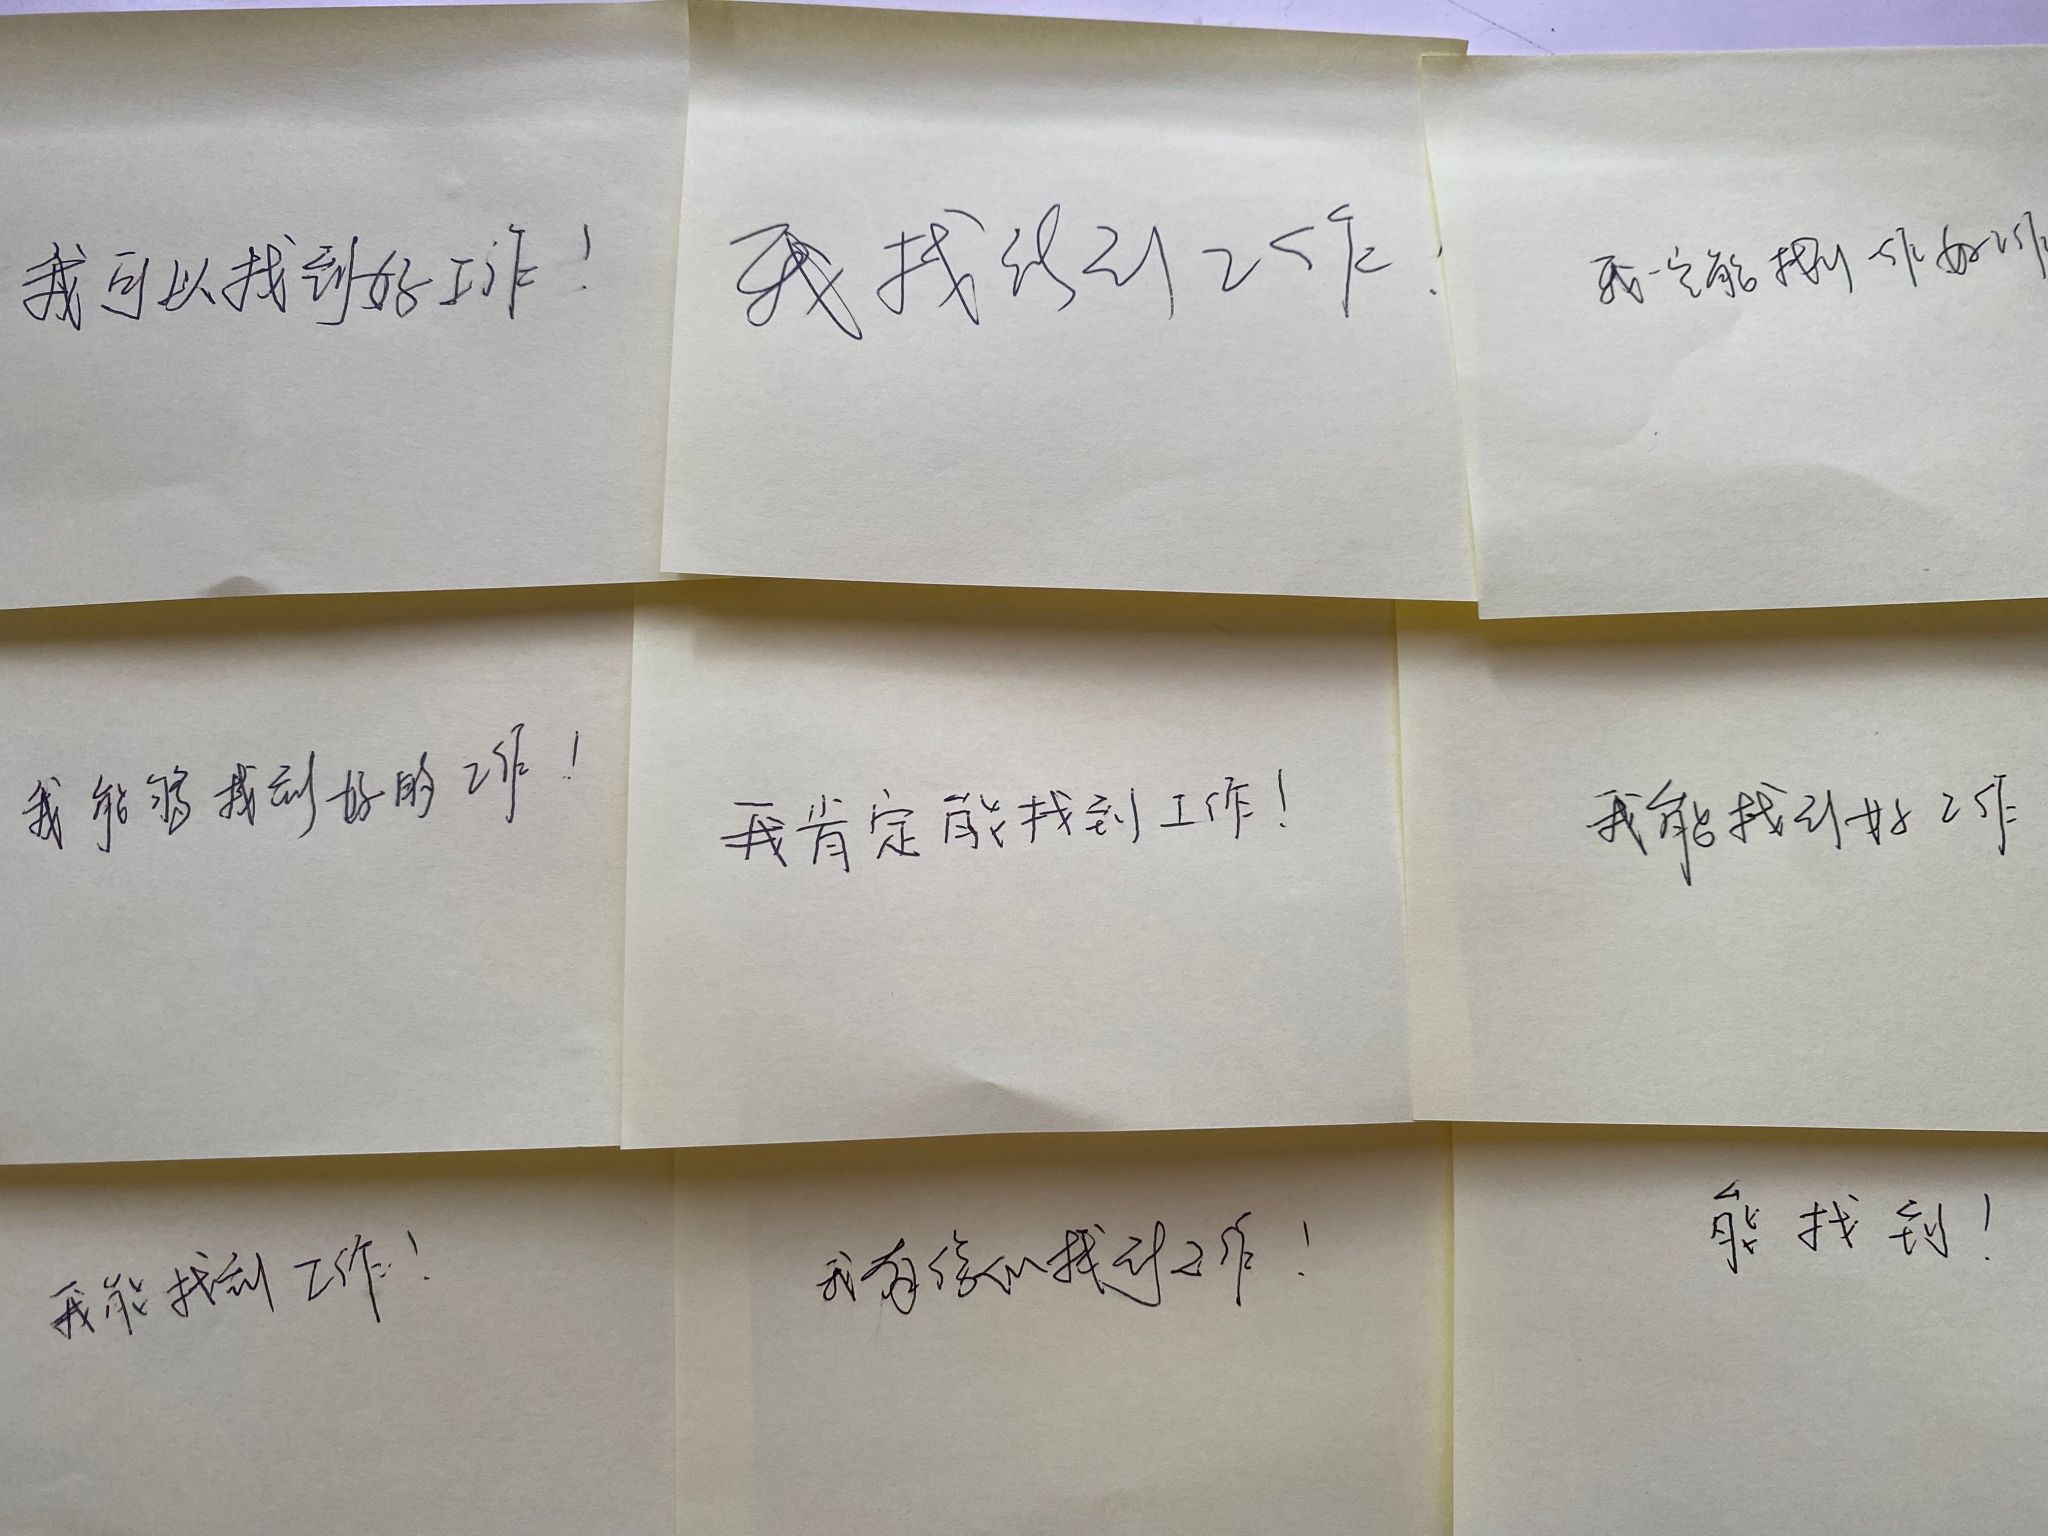 我可以找到好工作!
我找得到工作!
我一定能找到一份好工作
我能够找到好的工作!
我肯定能找到工作!
我能找到好工作
我能找到工作!
我有信心找到工作!
能找到!